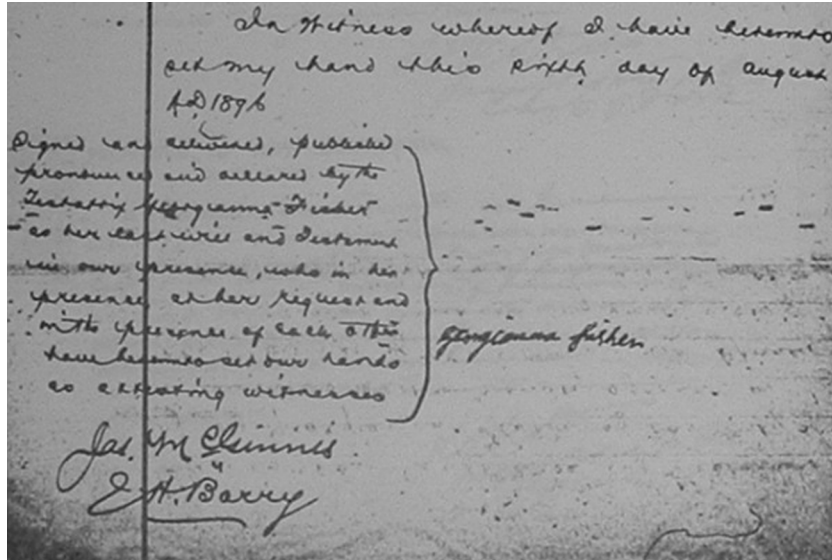 In Witness whereof I have hereunto
set my hand this sixth day of August
A.D. 1896
Signed and delivered, published
pronounced and declared by the
Testatrix Georgianna Fisher
as her last will and Testament
in our presence, who in her
presence at her request and
in the presence of each other
have hereunto set our hands
as attesting witnesses
Georgianna Fisher
Jas. McGinnis
J. H. Barry